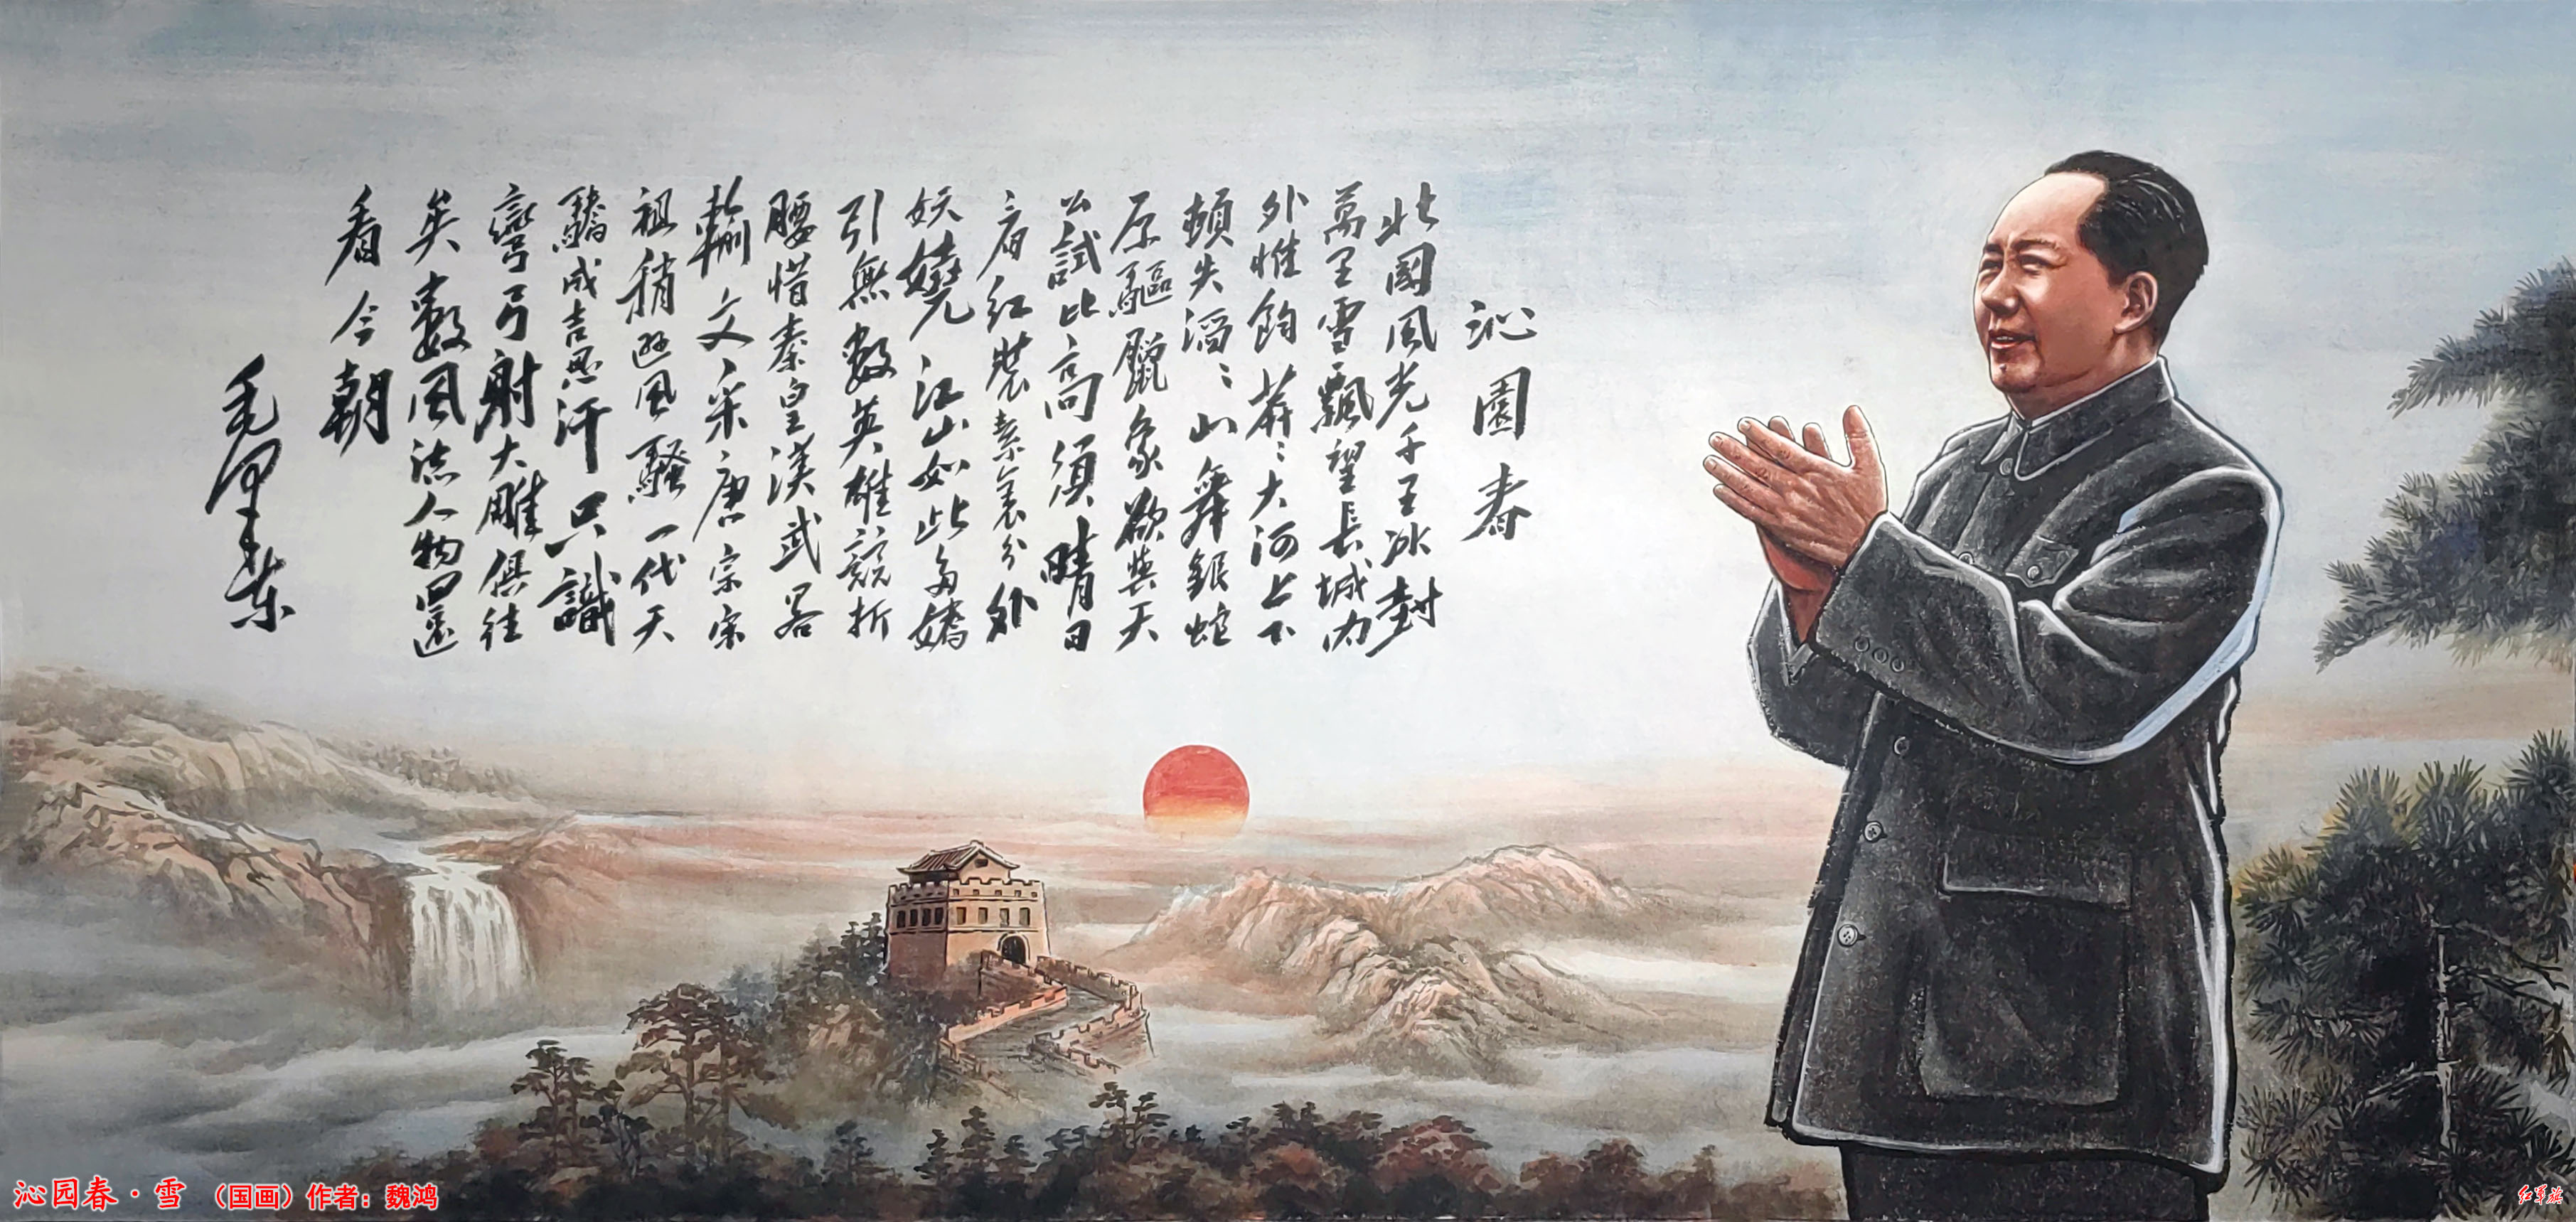 沁園春
北國風光千里冰封
萬里雪飄望長城內
外惟餘莽〻大河上下
頓失滔〻山舞銀蛇
原驅臘象欲與天
公試比高須晴日
看紅裝素裹分外
妖嬈江山如此多嬌
引無數英雄競折
腰惜秦皇漢武畧
輸文采唐宗宋
祖稍遜風騷一代天
驕成吉思汗只識
彎弓射大雕俱往
矣數風流人物還
看今朝
毛澤東
沁园春·雪 （国画）作者：魏鸿
红军旗